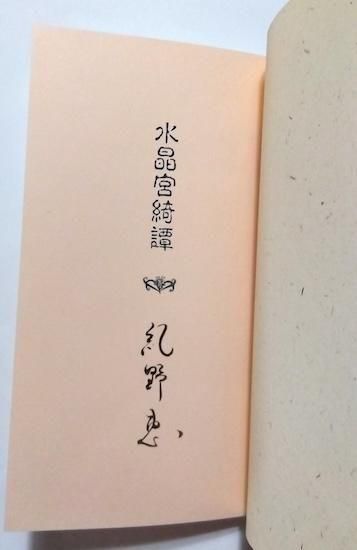 水晶宮綺譚
紀野恵